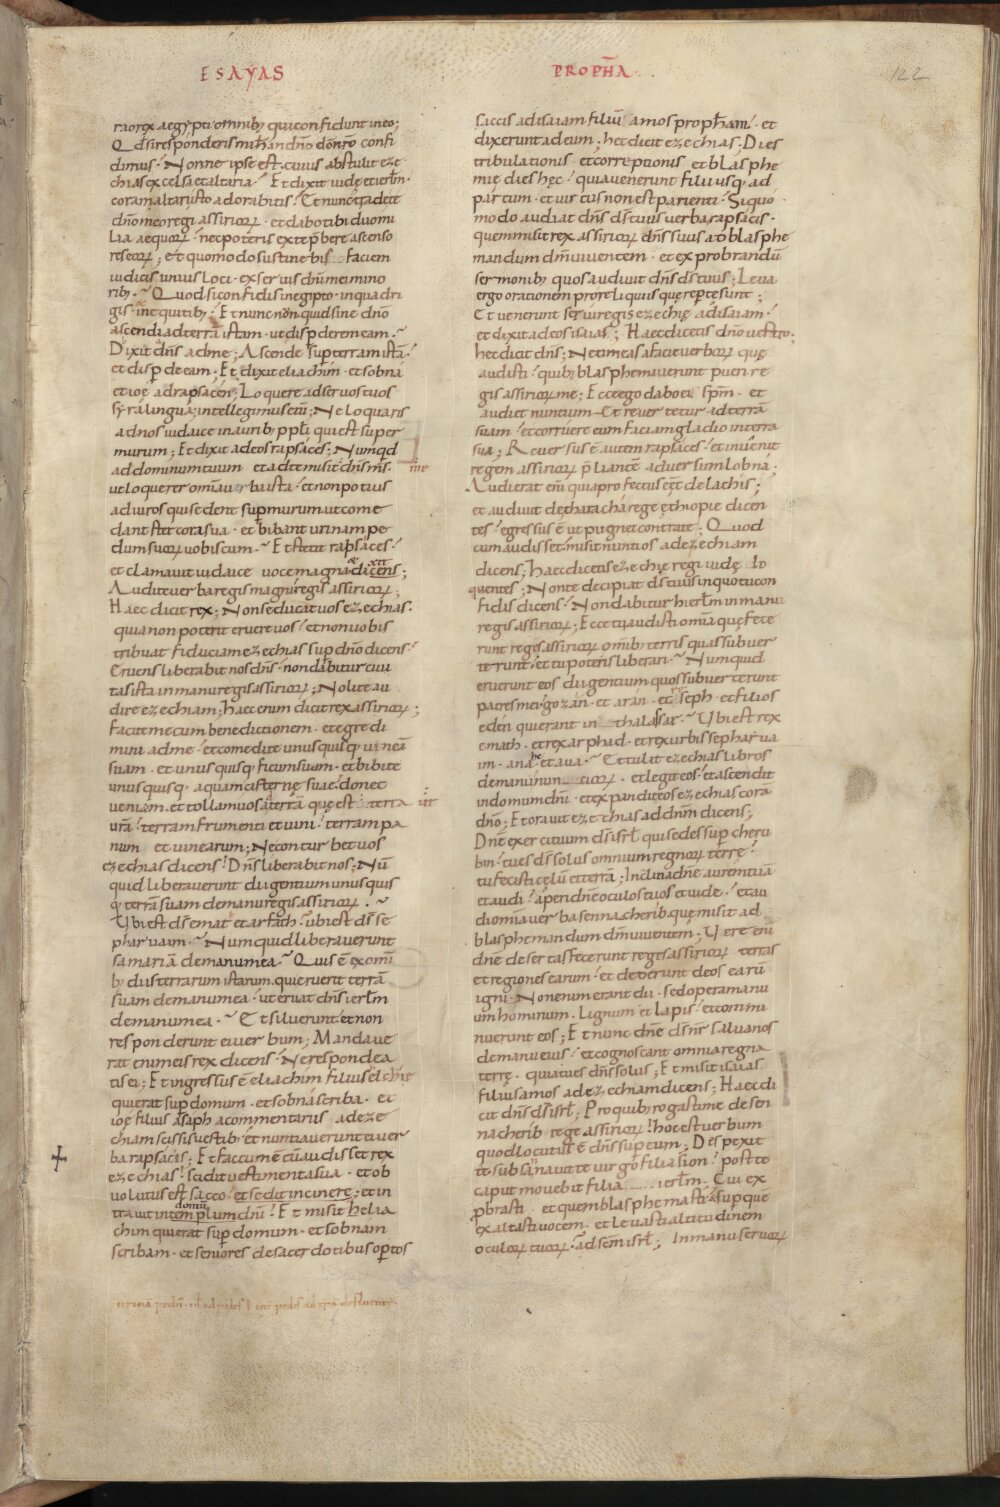 ESAYAS PROPHA
122
raorex aegypti omnib; qui confidunt in eo;
Qd si responderis mihi. in dno do nro confi
dimus. Nonne ipse est. cuius abstulit eze
chias excelsa et altaria. Et dixit iude et ierlm.
coram altari isto adorabitis. Et nunc trade te
dno meo regi assirior. et dabo tibi duo mi
lia aequor. nec poteris ex te pbere ascenso
res eor; et quomodo sustinebis faciem
iudicis unius loci. ex seruis dni mei mino
rib; Quod si confidis in egipto. in quadri
gis. in equitib; Et nunc non quid sine dno
ascendi ad terra istam. ut disperderem eam.
Dixit dns ad me; Ascende super terram ista.
et disperde eam. Et dixit eliachim. et sobna
et ioe ad rapsacen; Loquere ad seruos tuos
syra lingua; intellegimus eni; Ne loquaris
ad nos iudaice in aurib; ppli qui est super
murum; Et dixit ad eos rapsaces; Numqd
ad dominum tuum et ad te misit dns ms.
ut loquerer omia uerba ista. et non potius
ad uiros qui sedent sup murum ut come
dant stercora sua. et bibant urinam pe
dum suor uobiscum. Et stetit rapsaces.
et clamauit iudaice uoce magna et dixit dicens;
Audite uerba regis magni regis assirior;
Haec dicit rex; Non seducat uos ezechias.
quia non poterit eruere uos. et non uobis
tribuat fiducia ezechias sup dno dicens.
Eruens liberabit nos dns. non dabitur ciui
tas ista in manu regis assirior; Nolite au
dire ezechiam; haec enim dicit rex assirior;
Facite mecum benedictionem. et egredi
mini ad me. et comedite unusquisq; uinea
suam. et unusquisq; ficum suam. et bibite
unusquisq; aquam cisterne suae. donec
ueniam. et tollam uos a terra que est terra ut
ura. terram frumenti et uini. terram pa
num et uinearum; Ne conturbet uos
ezechias dicens. Dns liberabit nos; Nu
quid liberauerunt dii gentium unusquis
q; terra suam de manu regis assirior.
Ubi est ds emat et arfath. ubi est ds se
pharuaim. Numquid liberauerunt
samaria de manu mea. Quis e ex omi
b; diis terrarum istarum. qui eruerit terra
suam de manu mea. ut eruat dns ierlm
de manu mea. Et siluerunt. et non
responderunt ei uerbum; Mandaue
rat enim eis rex dicens. Ne respondea
tis ei; Et ingressus e eliachim filius elchie
qui erat sup domum. et sobna scriba. et
ioe filius asaph a commentariis ad eze
chiam scissis uestib; et nuntiauerunt ei uer
ba rapsacis; Et factum e cu audisset rex
ezechias. scidit uestimenta sua. et ob
uolutus est sacco et sedit in cinere; et in
trauit in domu templum dni. Et misit helia
chim qui erat sup domum. et sobnam
scribam. et seniores de sacerdotibus optos
saccis ad isaiam filiu amos propham. et
dixerunt ad eum; hec dicit ezechias. Dies
tribulationis et correptionis et blasphe
mie dies hec. quia uenerunt filii usq; ad
partum. et uirtus non est parienti. Si quo
modo audiat dns ds tuus uerba rapsacis.
quem misit rex assirior dns suus ad blasphe
mandum dm uiuentem. et exprobrandu
sermonib; quos audiuit dns ds tuus; Leua
ergo orationem pro reliquiis que reperte sunt;
Et uenerunt serui regis ezechie ad isaiam.
et dixit ad eos isaias; Haec dicetis dno uestro;
hec dicit dns; Ne timeas a facie uerbor que
audisti. quib; blasphemauerunt pueri re
gis assirior me; Ecce ego dabo ei spm. et
audiet nuntium. Et reuertetur ad terra
suam. et corruere eum faciam gladio in terra
sua; Reuersus e autem rapsaces. et inuenit
regem assirior pliante aduersum lobna.
Audierat eni quia profectus eet de lachis;
et audiuit de tharacha rege ethiopie dicen
tes. egressus e ut pugnet contra te. Quod
cum audisset misit nuntios ad ezechiam
dicens; Haec dicetis ezechie regi iude lo
quentes; Non te decipiat ds tuus in quo tu con
fidis dicens. Non dabitur hierlm in manu
regis assirior; Ecce tu audisti omia que fece
runt reges assirior omib; terris quas subuer
terunt. et tu poteris liberari. Numquid
eruerunt eos dii gentium quos subuerterunt
patres mei. gozan. et aran. et reseph. et filios
eden qui erant in thalassar. Ubi est rex
emath. et rex arphad. et rex urbis sepharua
im. ana et aua. Et tulit ezechias libros
de manu nuntior. et legit eos. et ascendit
in domum dni. et expandit eos ezechias cora
dno; Et orauit ezechias ad dnm dicens;
Dne exercituum ds isrl qui sedes sup cheru
bin. tu es ds solus omnium regnor terre.
tu fecisti celu et terra; Inclina dne aurem tua
et audi. aperi dne oculos tuos et uide. et au
di omia uerba sennacherib que misit ad
blasphemandum dm uiuentem. Uere eni
dne desertas fecerunt reges assirior terras
et regiones earum. et dederunt deos earu
igni. Non enim erant dii. sed opera manu
um hominum. lignum et lapis. et commi
nuerunt eos; Et nunc dne ds nr salua nos
de manu eius. et cognoscant omnia regna
terre. quia tu es dns solus; Et misit isaias
filius amos ad ezechiam dicens; Haec di
cit dns ds isrl; Pro quib; rogasti me de sen
nacherib rege assirior. hoc est uerbum
quod locutus e dns sup eum; Despexit
te subsannauit te uirgo filia sion. post te
caput mouebit filia ierlm. Cui ex
probrasti. et quem blasphemasti. et sup que
exaltasti uocem. et leuasti altitudinem
oculor tuor. ad sem isrl; In manu seruor